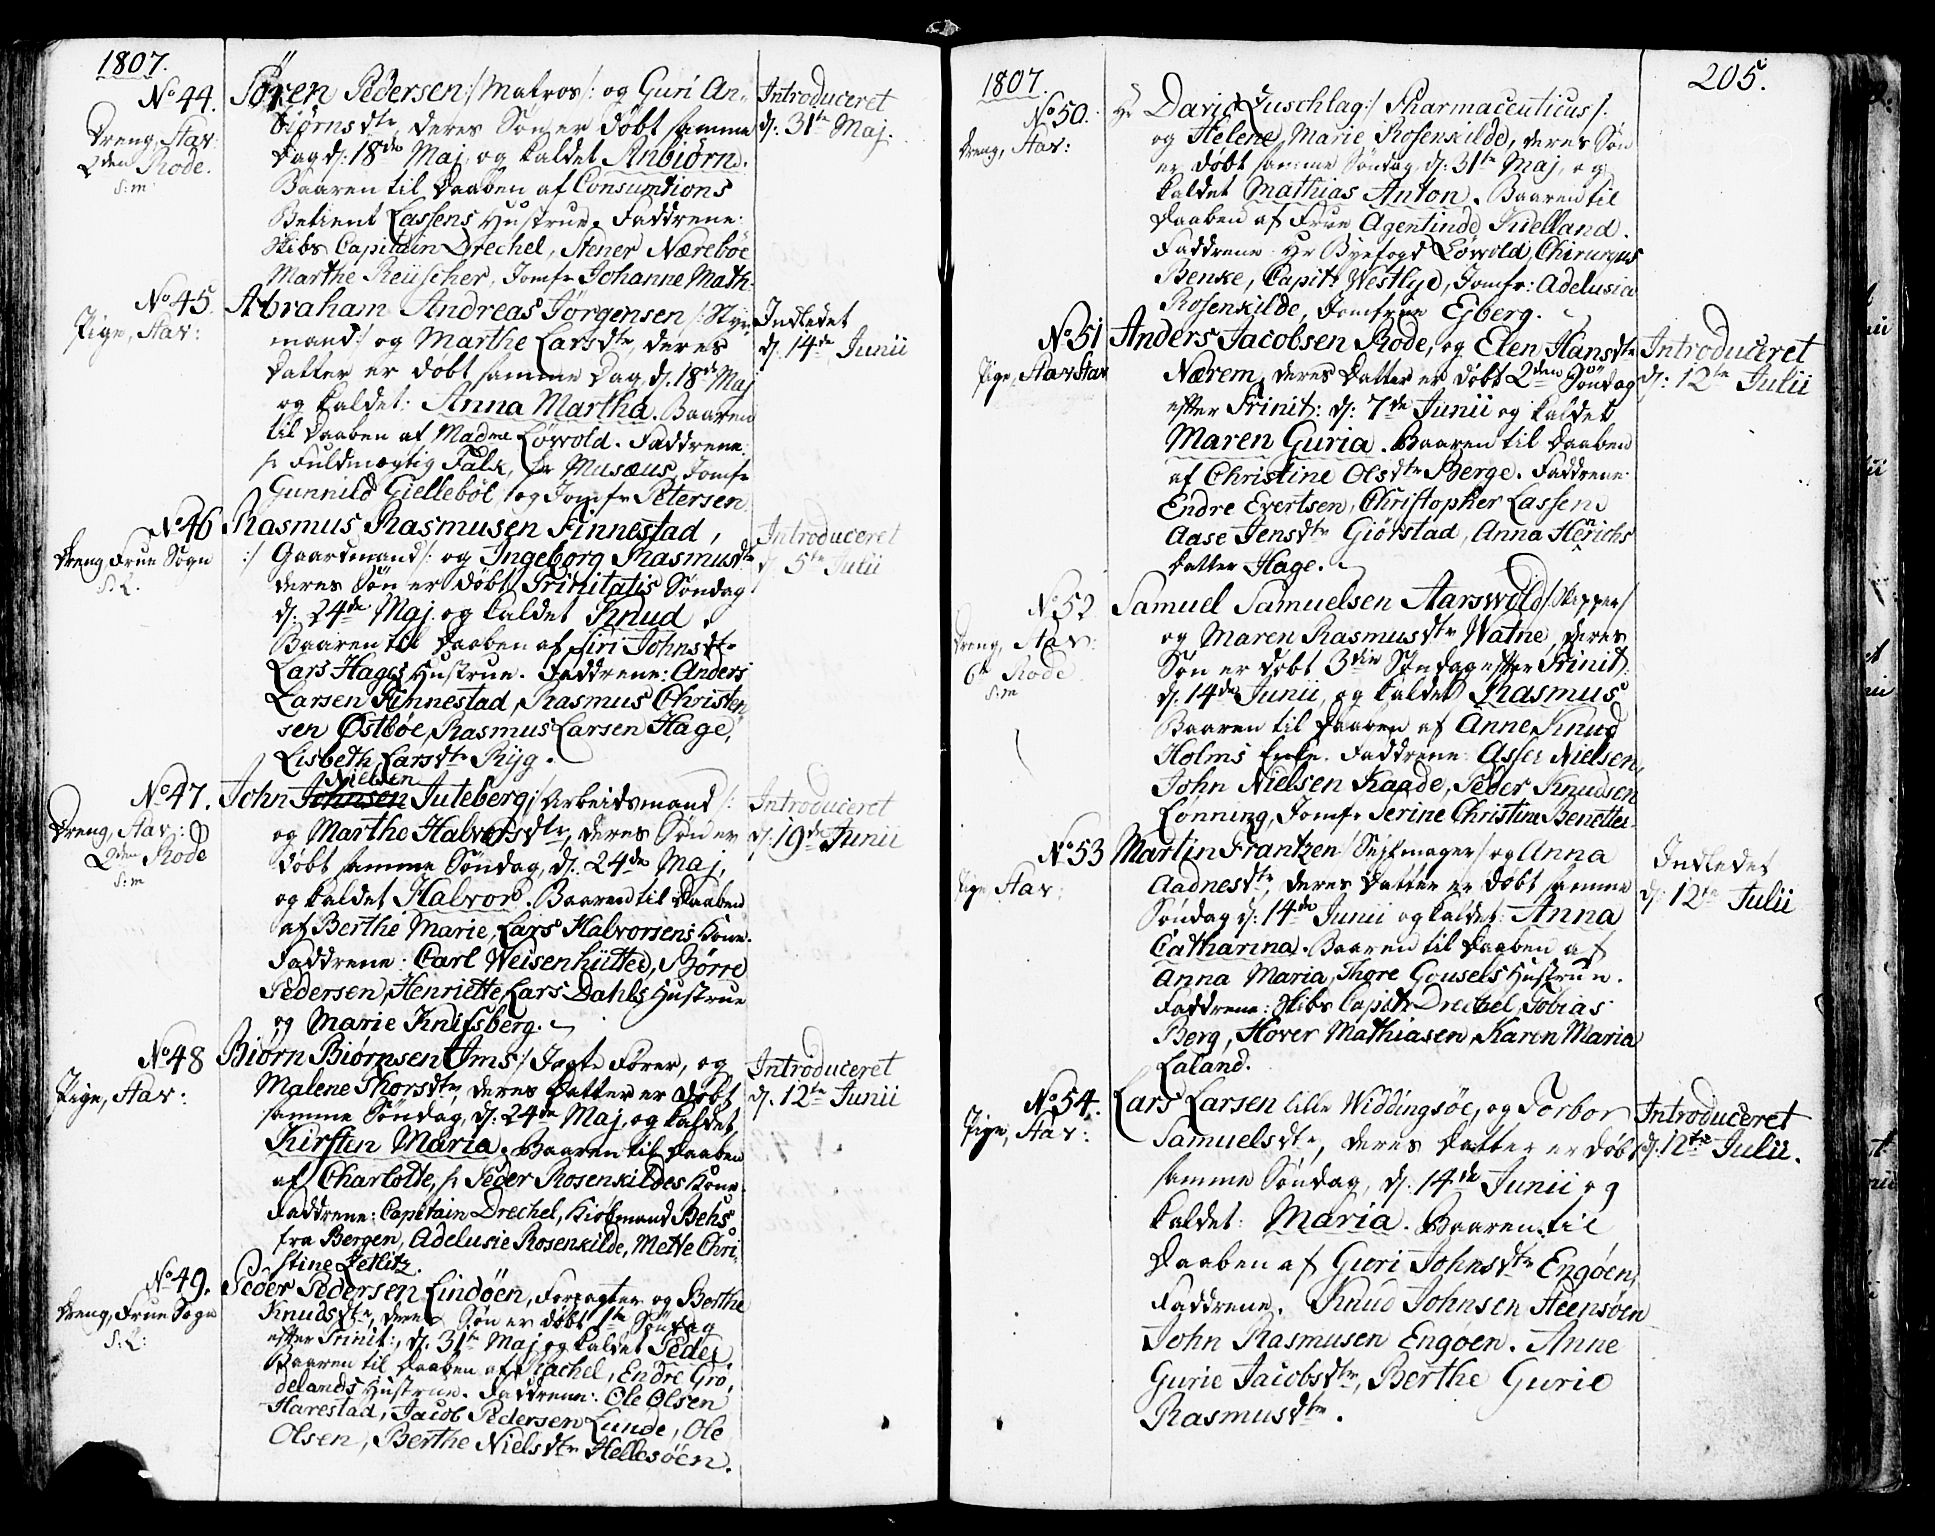 1807.
No 44.
Dreng, Stav:
2den Rode.
S:m
Søren Pedersen /: Matros /: og Guri An-
biørnsdtr, deres Søn er døbt samme
Dag d: 18de Maj, og kaldet Anbiørn.
Baaren til Daaben af Consumtions
Betient Lassens Hustrue. Faddrene:
Skibs Capitain Drechel, Stener Nærebøe
Marthe Reüscher, Jomfr Johanne Math-
Introduceret
d: 31te Maj.
No 45.
Pige, Stav:
Abraham Andreas Jørgensen /: Styr-
mand /: og Marthe Larsdtr, deres
Datter er døbt samme Dag, d. 18de Maj
og kaldet: Anna Martha. Baaren
til Daaben af Madme Löwold. Faddrene:
Hr Fuldmægtig Falk, Hr Musæus, Jomfr
Gunnild Giellebøl, og Jomfr Petersen
Indledet
d. 14de Junii
No 46
Dreng, Frue Sogn
S:L.
Rasmus Rasmusen Finnestad,
:/ Gaardmand /: og Ingeborg Rasmusdtr
deres Søn er døbt Trinitatis Søndag
d: 24de Maj og kaldet Knud.
Baaren til Daaben af Siri Johnsdtr
Lars Hages Hustrue. Faddrene: Anders
Larsen Finnestad, Rasmus Christen-
sen Østbøe, Rasmus Larsen Hage,
Lisbeth Larsdtr Ryg.
Introduceret
d. 5te Julii
No 47.
Dreng, Stav:
2den Rode
S:m
Nielsen
John Johnsen Juteberg /: Arbeidsmand /:
og Marthe Halvorsdtr, deres Søn er
døbt samme Søndag, d. 24de Maj,
og kaldet Halvor. Baaren til Daaben
af Berthe Marie, Lars Halvorsens Kone.
Faddrene: Carl Weisenhütter, Børre
Pedersen, Henriette, Lars Dahls Hustrue
og Marie Knifsberg.
Introduceret
d. 19de Junii
No 48
Pige, Stav:
Biørn Biørnsen Ims /: Jagte Fører, og
Malene Thorsdtr, deres Datter er døbt
samme Søndag, d. 24de Maj, og kaldet
Kirsten Maria. Baaren til Daaben
af Charlotte, Hr Peder Rosenkildes Kone
Faddrene: Capitain Drechel, Kiøbmand Behs
fra Bergen, Adelusie Rosenkilde, Mette Chri-
stine Zetlitz.
Introduceret
d. 12te Junii
No 49.
Dreng, Frue Sogn
S:L:
Peder Pedersen Lindøen, Forpagter og Berthe
Knudsdtr, deres Søn er døbt 1te Søndag
efter Trinit:, d. 31te Maj og kaldet Peder
Baaren til Daaben af Rachel, Endre Grø-
delands Hustrue. Faddrene: Ole Olsen
Harestad, Jacob Pedersen Lunde, Ole
Olsen, Berthe Nielsdtr Hellesøen.
1807.
205.
No 50.
Dreng, Stav:
Hr David Zuschlag /: Pharmaceuticus /:
og Helene Marie Rosenkilde, deres Søn
er døbt samme Søndag, d: 31te Maj, og
kaldet Mathias Anton. Baaren til
Daaben af Frue Agentinde Kielland.
Faddrene: Hr Byefogd Löwold, Chirurgus
Benke, Capit: Westlye, Jomfr: Adelusia
Rosenkilde, Jomfrue Egberg.
No 51
Pige, Stav Stav
Anders Jacobsen Rode, og Elen Hansdtr
Nærem, deres Datter er døbt 2den Søndag
efter Trinit: d: 7de Junii og kaldet
Maren Guria. Baaren til Daaben
af Christine Olsdtr Berge. Faddrene:
Endre Evertsen, Christopher Lassen
Aase Jensdtr Giørstad, Anna Henrichs
Datter Hage.
Introduceret
d: 12te Julii
No 52
Dreng, Stav:
6te Rode
S:m
Samuel Samuelsen Aarswold /: Skipper /:
og Maren Rasmusdtr Watne, deres
Søn er døbt 3die Søndag efter Trinit:
d. 14de Junii, og kaldet Rasmus
Baaren til Daaben af Anne, Knud
Holms Enke. Faddrene: Asser Nielsen,
John Nielsen Kaade, Peder Knudsen
Lønning, Jomfr Serine Christine Benetter-
No 53
Pige, Stav:
Martin Frantzen /: Sejlmager /: og Anna
Aadnesdtr, deres Datter er døbt samme
Søndag d: 14de Junii og kaldet: Anna
Catharina. Baaren til Daaben af
Anna Maria, Thore Gousels Hustrue.
Faddrene: Skibs Capit: Drechel, Tobias
Berg, Hover Mathiasen, Karen Maria
Laland.
Indledet
d: 12te Julii
No 54.
Pige, Stav:
Lars Larsen lille Widdingsøe, og Torbor
Samuelsdtr, deres Datter er døbt
samme Søndag, d: 14de Junii og
kaldet: Maria. Baaren til
Daaben af Guri Johnsdtr Engøen,
Faddrene. Knud Johnsen Steensøen
John Rasmusen Engøen. Anne
Gurie Jacobsdtr, Berthe Gurie
Rasmusdtr.
Introduceret
d: 12te Julii.